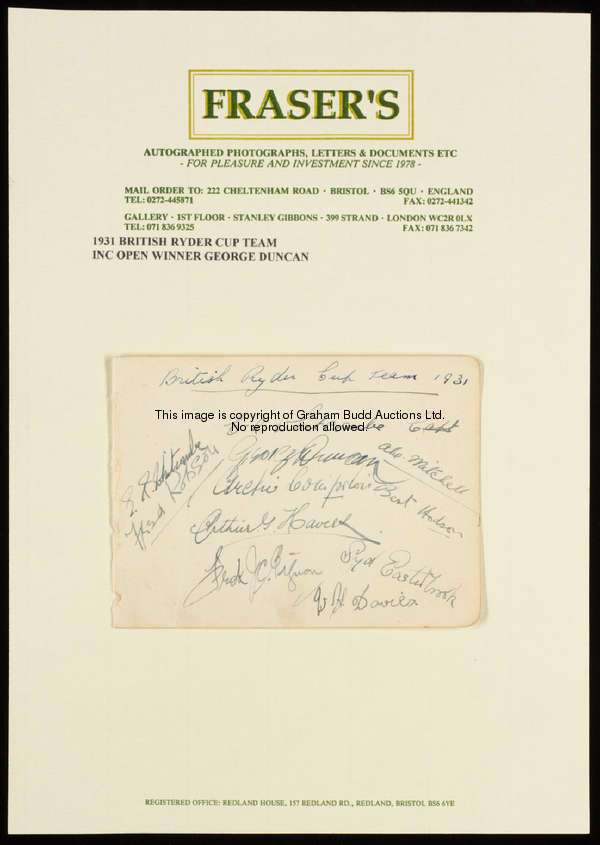 FRASER'S
AUTOGRAPHED PHOTOGRAPHS, LETTERS & DOCUMENTS ETC
- FOR PLEASURE AND INVESTMENT SINCE 1978 -
MAIL ORDER TO: 222 CHELTENHAM ROAD · BRISTOL · BS6 5QU · ENGLAND
TEL: 0272-445871 FAX: 0272-441342
GALLERY · 1ST FLOOR · STANLEY GIBBONS · 399 STRAND · LONDON WC2R 0LX
TEL: 071 836 9325 FAX: 071 836 7342
1931 BRITISH RYDER CUP TEAM
INC OPEN WINNER GEORGE DUNCAN
British Ryder Cup Team 1931
This image is copyright of Graham Budd Auctions Ltd.
No reproduction allowed.
Capt
George Duncan
Abe Mitchell
E R Whitcombe
Fred Robson
Archie Compston
Bert Hodson
Arthur G. Havers
Syd Easterbrook
W H Davies
REGISTERED OFFICE: REDLAND HOUSE, 157 REDLAND RD., REDLAND, BRISTOL BS6 6YE